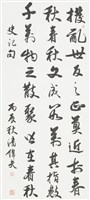 撥亂世反之正莫近於春
秋春秋文成數萬其指數
千萬物之散聚皆在春秋
史記句
丙辰秋